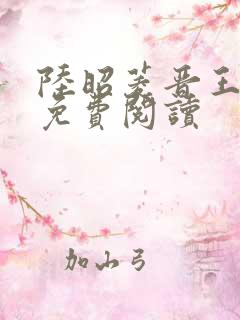 陸昭菱晋王
免費閱讀
加山弓